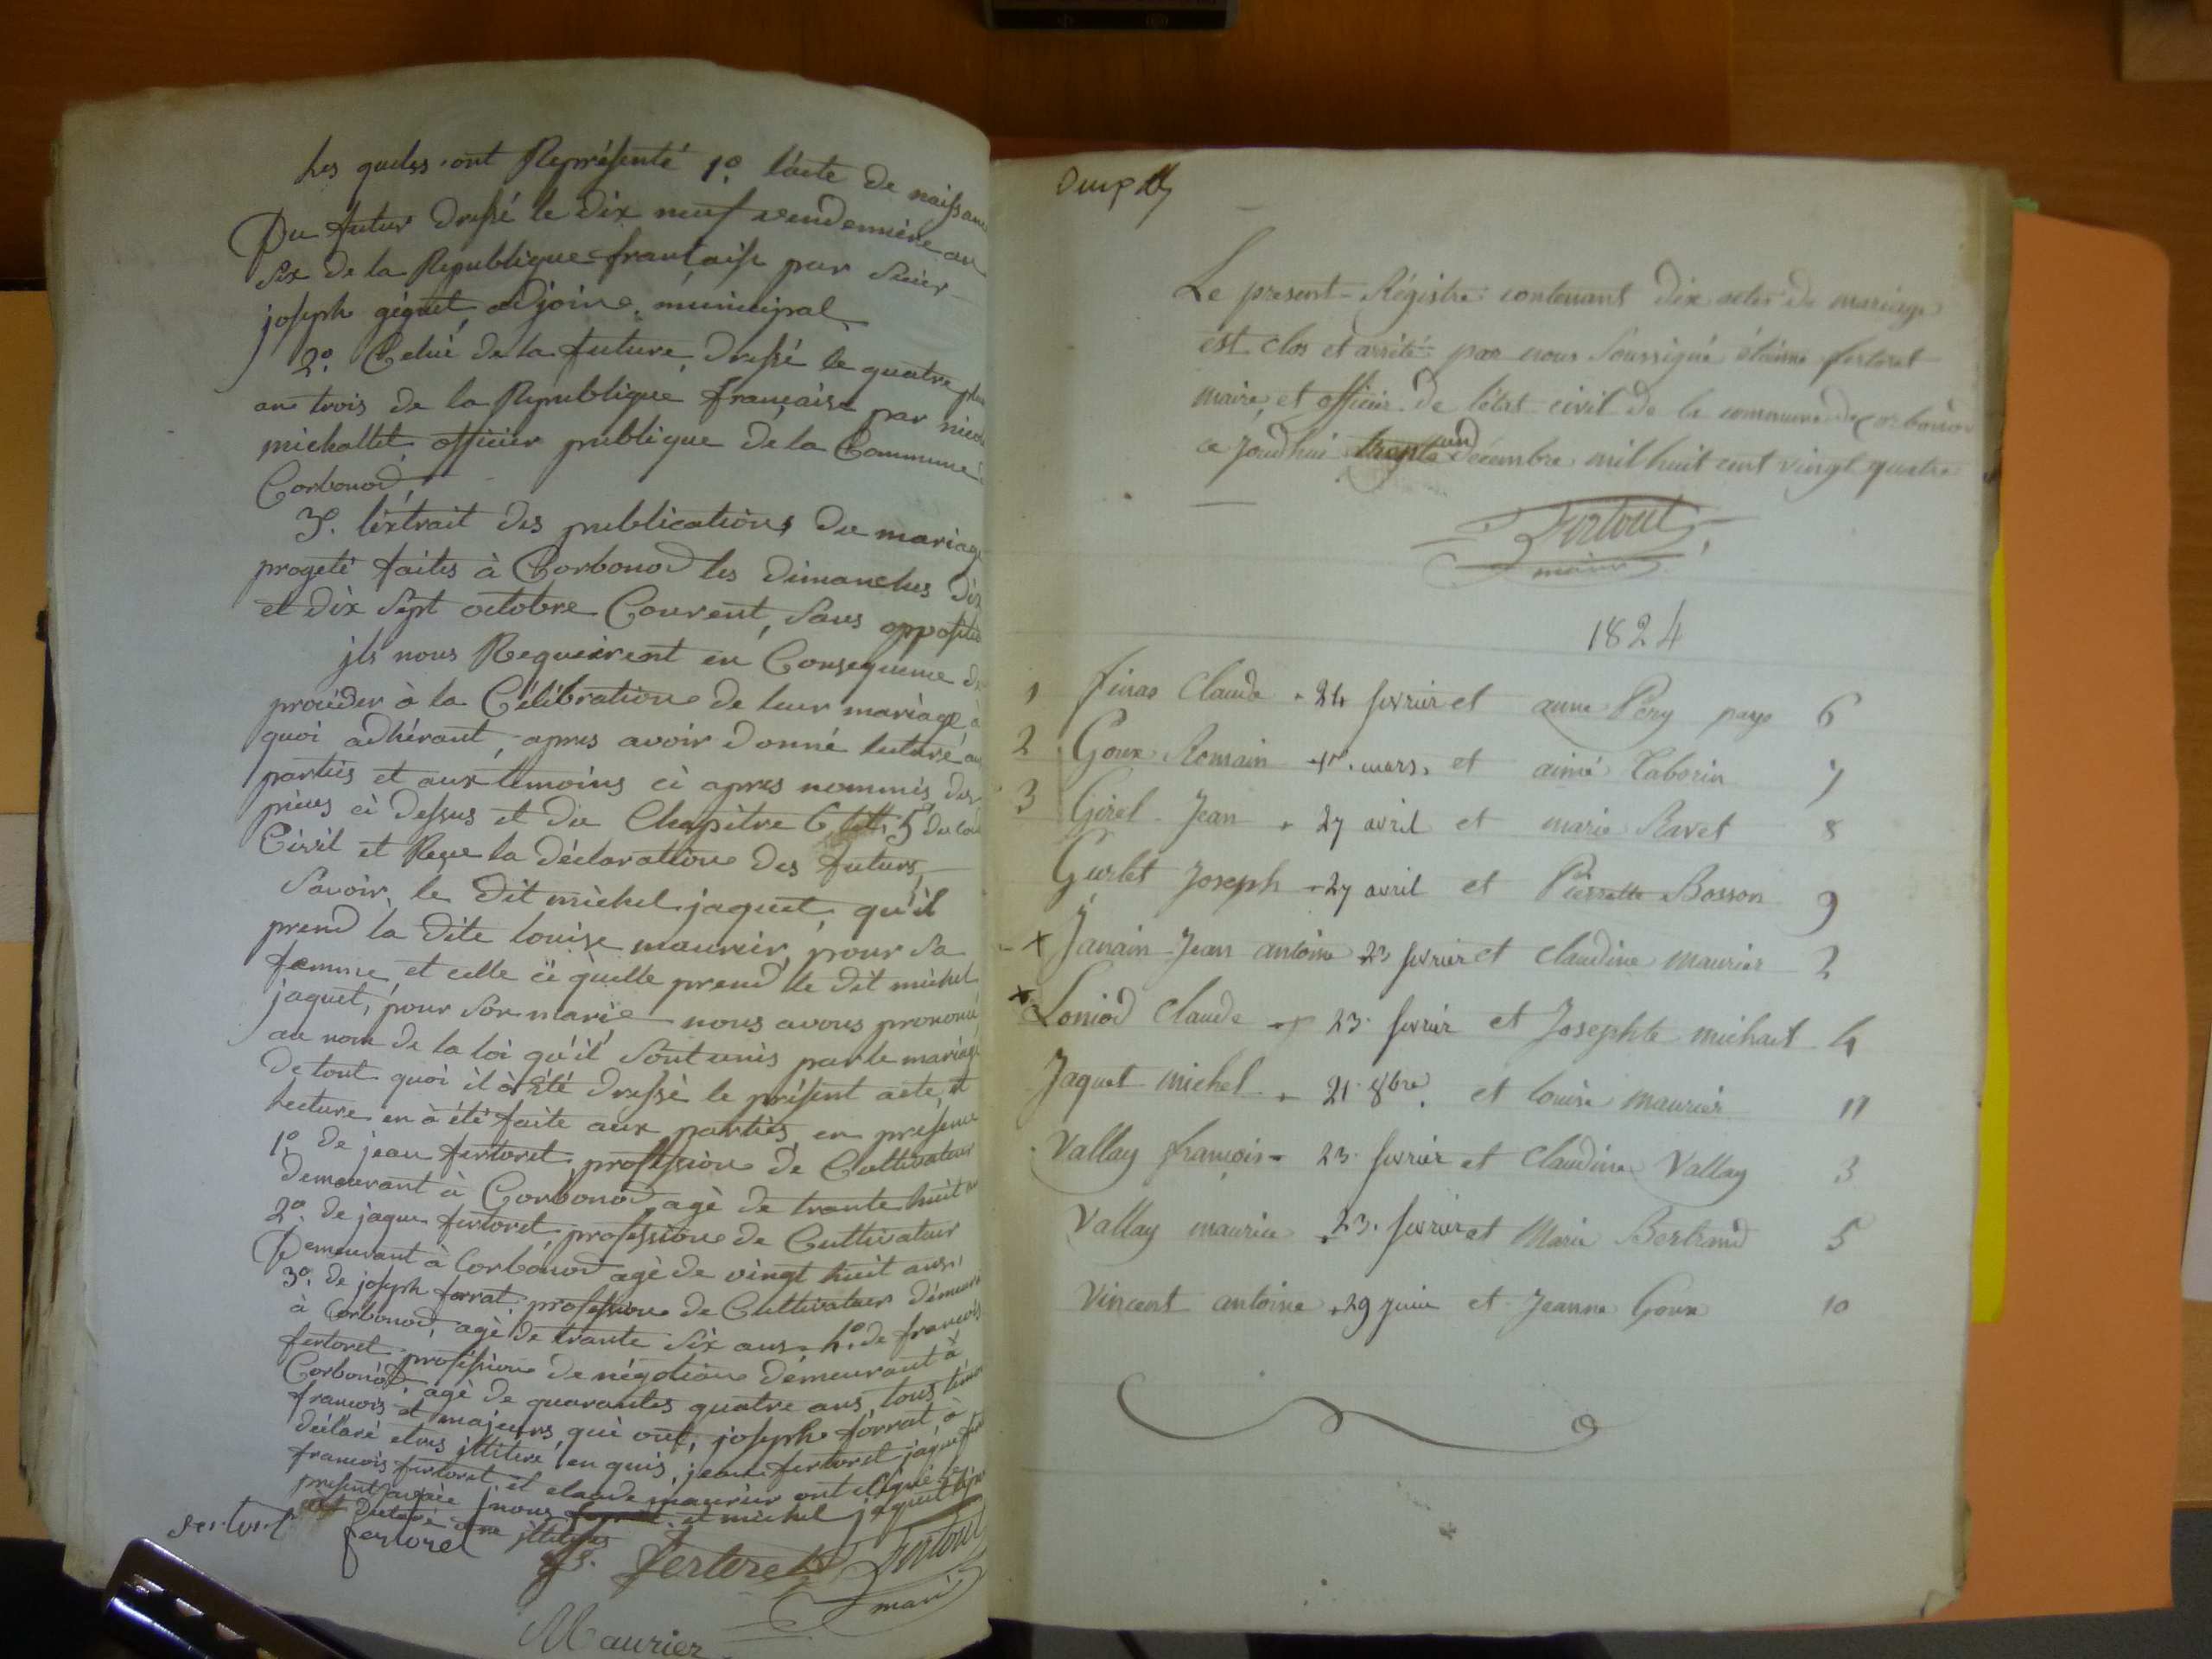 Les quels ont Représenté 1º. l'acte de naissance
Du futur dressé le dix neuf vendemière an
Six de la Republique francaise par Sieur
joseph géguet, adjoint municipal
2º. Celui de la future, dressé le quatre
an trois de la Republique francaise par
michallet officier publique de la Commune
Corbonod,
3º. léxtrait des publications du mariage
progeté faites à Corbonod les dimanches dix
et dix sept octobre Courent, sans opposition
jls nous Requeirent en Consequence de
procéder à la Célébration de leur mariage, à
quoi adhérant, apres avoir donné lecture au
parties et aux temoins ci apres nommés des
pieces ci dessus et du Chapitre 6 tit. 5 du code
Civil et Reçu la déclaration des futurs,
Savoir, le dit michel jaquet, qu'il
prend la dite louise maurier, pour sa
femme, et celle ci quelle prend le dit michel
jaquet, pour son marie nous avons prononcé
au nom de la loi qu'il sont unis par le mariage
de tout quoi il à été dressé le présent acte, et
Lecture en à été faite aux parties, en présence
1º. de jean fertoret profession de Cultivateur
demeurant à Corbonod agé de trante huit
2º. de jaque fertoret, profession de Cultivateur
Demeurant à Corbonod agé de vingt huit ans,
3º. de joseph forrat profession de Cultivateur démeurant
à Corbonod, agé de trante six ans. 4º. de francois
fertoret profession de négotian démeurant à
Corbonod, agé de quarantes quatre ans, tous témoins
francois et majeurs, qui ont, joseph forrat, à
déclaré etres jllitéré, en quis, jean fertoret jaque
francois fertoret et claude maurier ont signé le
présent avec nous et michel jaquet
déclaré jllitéré
fertoret fertoret fertoret Fertoret
maire
Maurier
Le present Régistre contenant dix actes de mariage
est clos et arrêté par nous soussigné étienne fertoret
maire, et officier de l'état civil de la commune de Corbonod
ce jourdhui trente un décembre mil huit cent vingt quatre
Fertoret
maire
1824
1 finas Claude 24 fevrier et anne Pery page 6
2 Goux Romain 1er. mars. et aimé Taborin 7
3 Girel Jean 27 avril et marie Ravet 8
Gurlet Joseph 27 avril et Pierrette Bosson 9
x Janain Jean antoine 23 fevrier et claudine maurier 2
x Loniod Claude 23 fevrier et Josephte michait 4
Jaquet michel 21 8bre. et louise maurier 11
Vallay francois 23 fevrier et Claudine Vallay 3
Vallay maurice 23. fevrier et Marie Bertrand 5
Vincent antoine 29 juin et Jeanne Goux 10